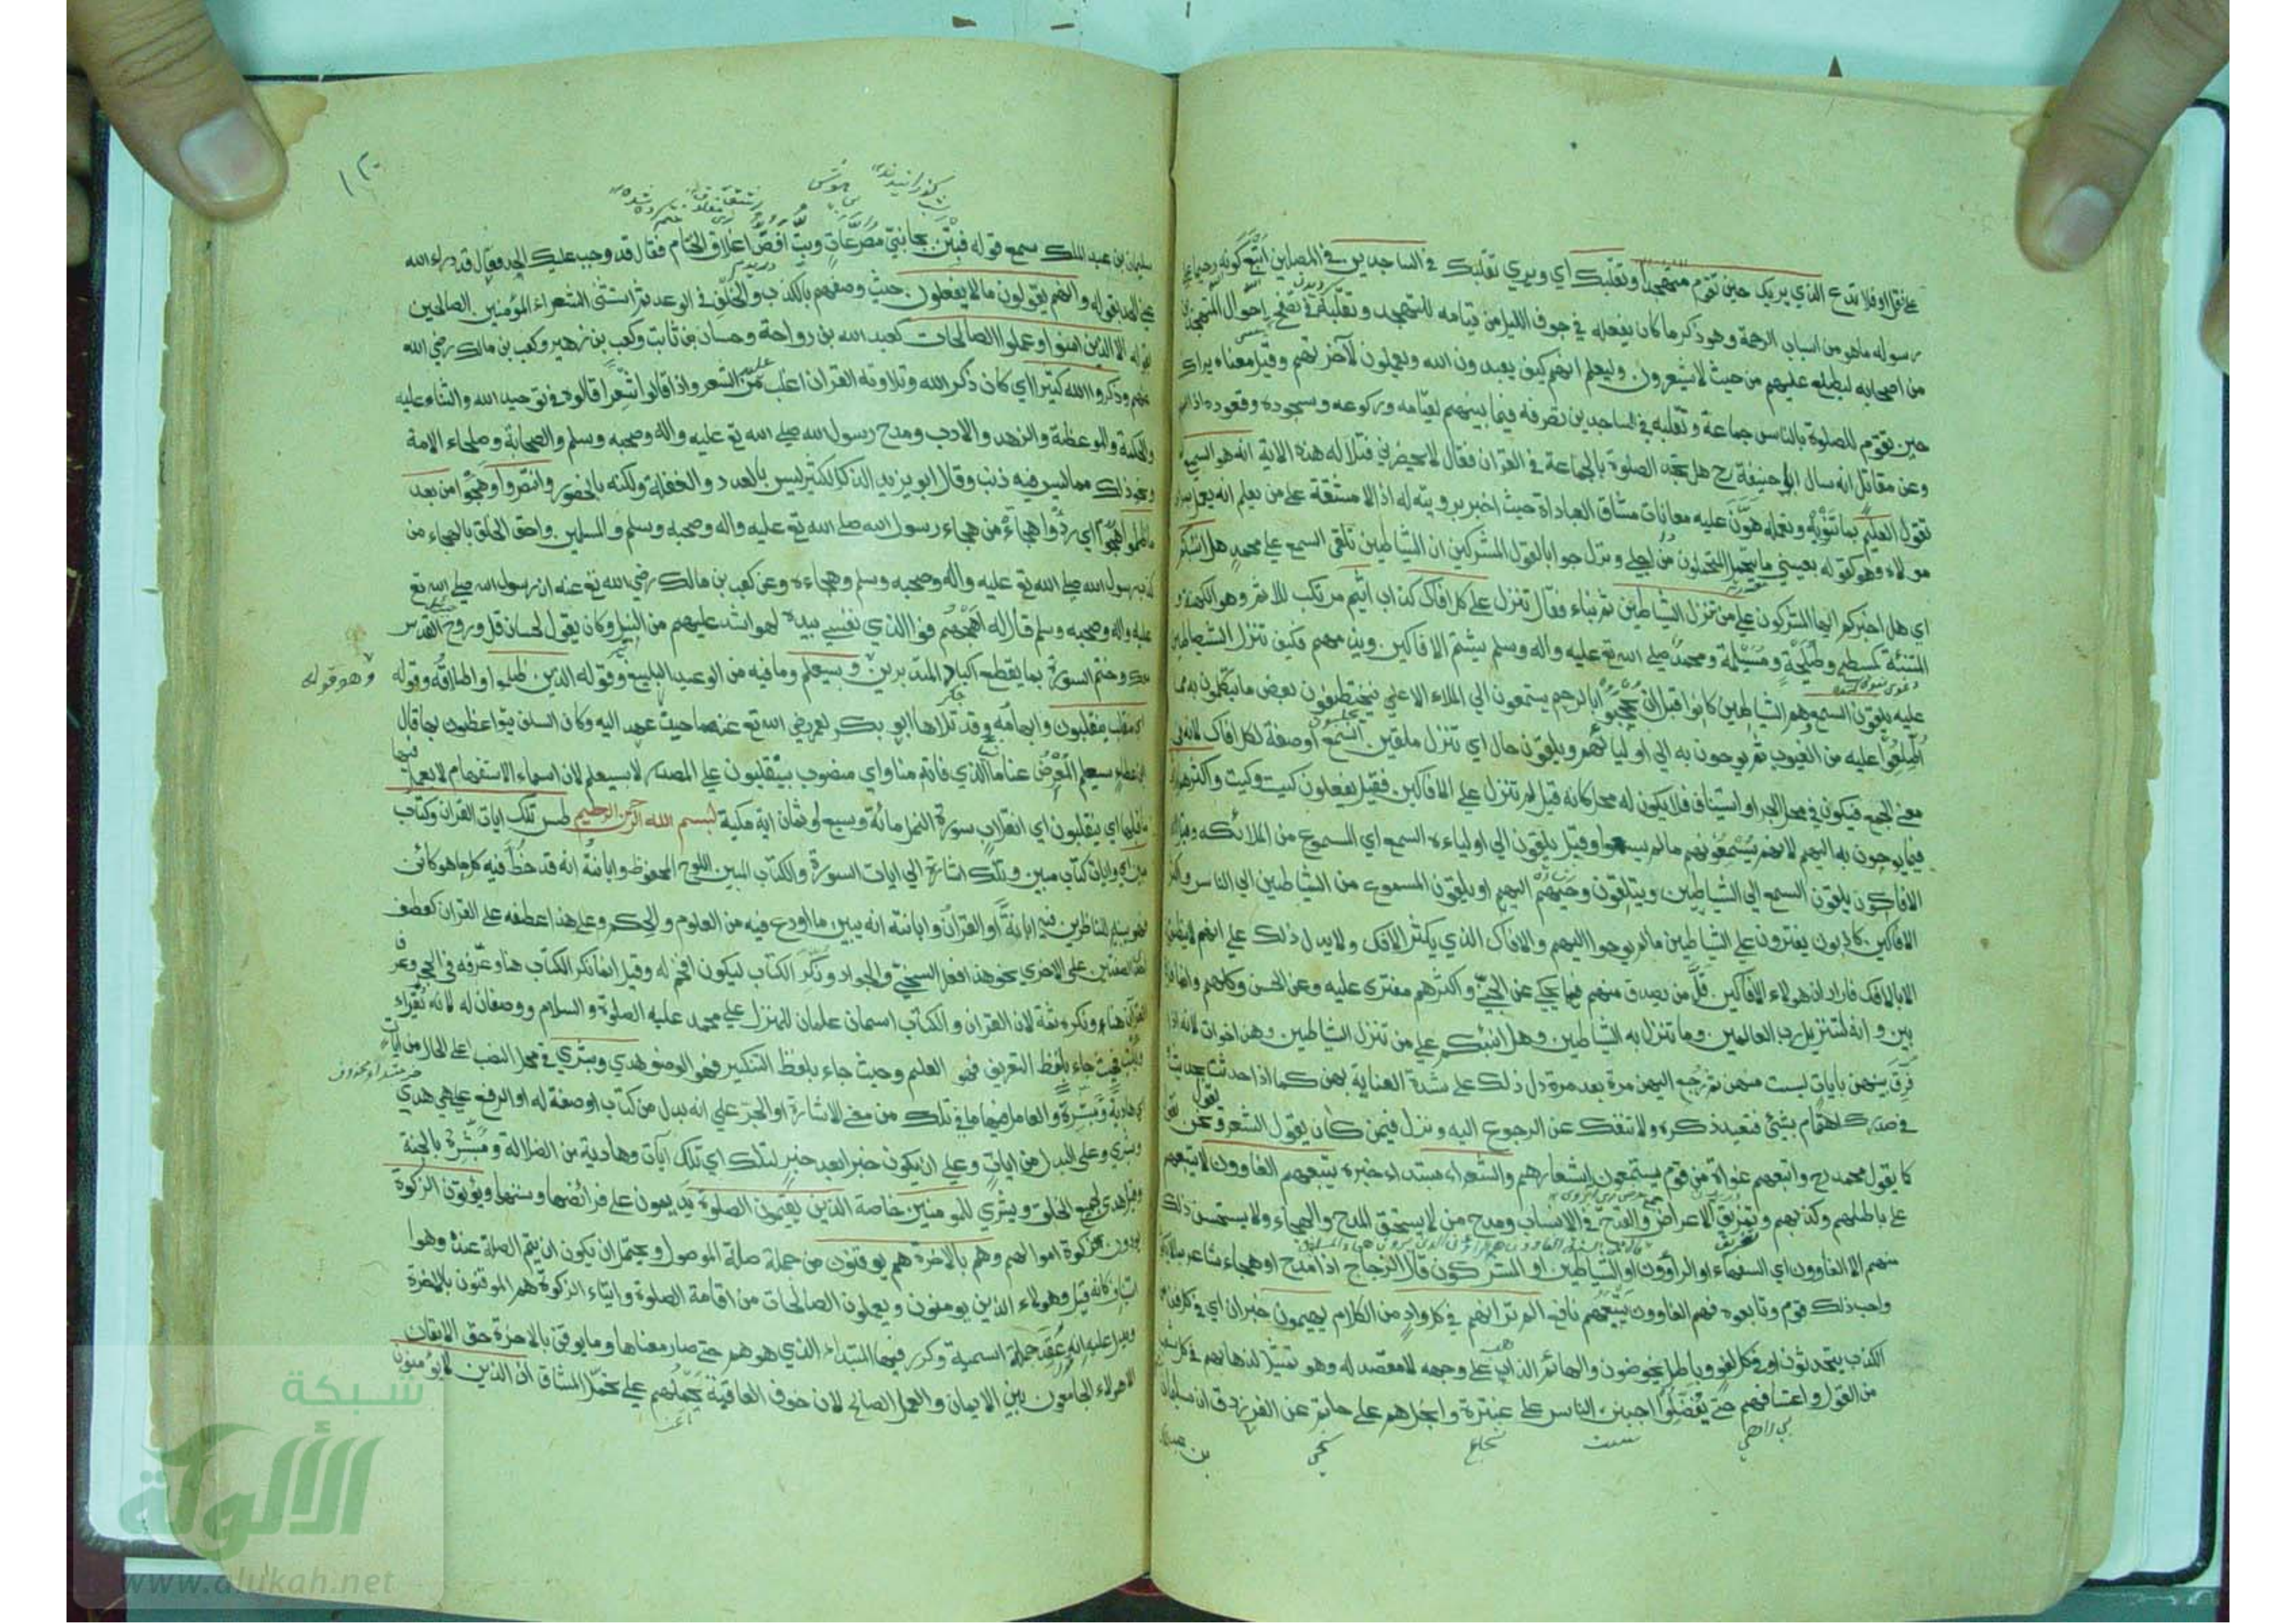 على قلة اوفلا تدع الذي يريك حين تقوم متهجدا وتقلبك اي ويري تقلبك في الساجدين في المصلين اتبع كونه رحيما على
رسوله ما هو من اسباب الرحمة وهو ذكر ما كان يفعله في جوف الليل من قيامه للتهجد وتقلبه في تصفح احوال المتهجدين
من اصحابه ليطلع عليهم من حيث لا يشعرون وليعلم انهم كيف يعبدون الله ويعملون لآخرتهم وقيل معناه يراك
حين تقوم للصلوة بالناس جماعة وتقلبه في الساجدين تصرفه فيما بينهم لقيامه وركوعه وسجوده وقعوده اذا
وعن مقاتل انه سال ابو حنيفة رح هل تجد الصلوة بالجماعة في القران فقال لا يحضرني فتلا له هذه الاية انه هو السميع
تقول العليم بما تنويه وتعمله هون عليه معانات مشاق العبادات حيث اخبر برويته له اذ لا مشقة على من يعلم انه يعمل
مولاه وهو كقوله بعيني ما يتحمل المتحملون من اجلي ونزل جوابا لقول المشركين ان الشياطين تلقى السمع على محمد هل انبئكم
اي هل اخبركم ايها المشركون على من تنزل الشياطين ثم نباء فقال تنزل على كل افاك كذاب اثيم مرتكب للاثم وهو الكهنة و
المتنبئة كسطيح وطليحة ومسيلمة ومحمد صلى الله تع عليه واله وسلم يشتم الافاكين ويذمهم فكيف تنزل الشياطين
عليه يلقون السمع وهم الشياطين كانوا قبل ان حجبوا بالرجم يستمعون الى الملاء الاعلى فيختطفون بعض ما يتكلمون به مما
اطلعوا عليه من الغيوب ثم يوحون به الى اوليائهم ويلقون حال اي تنزل ملقين السمع او صفة لكل افاك لانه في
معنى الجمع فيكون في محل الجر او استيناف فلا يكون له محل كانه قيل لم تنزل على الافاكين فقيل يفعلون كيت وكيت واكثرهم
فيما يوحون به اليهم لانهم يسمعونهم ما لم يسمعوا وقيل يلقون الى اولياءه السمع اي المسموع من الملائكه وقيل
الافاكون يلقون السمع الى الشياطين ويتلقون وحيهم اليهم او يلقون المسموع من الشياطين الى الناس واكثر
الافاكين كاذبون يفترون على الشياطين ما لم يوحوا اليهم والافاك الذي يكثر الافك ولا يدل ذلك على انهم لا ينطقون
الا بالافك فاراد ان هولاء الافاكين قل من يصدق منهم فيما يحكي عن الجني واكثرهم مفترى عليه وعن الحسن وكلهم وانما
بين وانه لتنزيل رب العالمين وما تنزل به الشياطين وهل انبئكم على من تنزل الشياطين وهن اخوات لانه اذا
فرق بينهن بايات ليست منهن ثم رجع اليهن مرة بعد مرة دل ذلك على شدة العناية بهن كما اذا حدثت حديث
في صدرك اهتمام بشئ فتعيد ذكره ولا تنفك عن الرجوع اليه ونزل فيمن كان يقول الشعر و نحن نقول
كما يقول محمد رح واتبعهم غواة من قوم يستمعون اشعارهم والشعراء مبتداء خبره يتبعهم الغاوون لا يتبعهم
على باطلهم وكذبهم وتمزيق الاعراض والقدح في الانساب ومدح من لا يستحق المدح والهجاء ولا يستحسن ذلك
منهم الا الغاوون اي السفهاء او الراؤون او الشياطين او المشركون قال الزجاج اذا مدح او هجاء شاعر
واحب ذلك قوم وتابعوه فهم الغاوون يتبعهم نافع الم تر انهم في كل واد من الكلام يهيمون خبر ان اي في كل فن
الكذب يتحدثون او في كل لغو وباطل يخوضون والهائم الذاهب على وجهه لا مقصد له وهو تمثيل لذهابهم في كل
من القول واعتسافهم حتى يفضلوا اجبن الناس على عنترة وابخلهم على حاتم عن الفرزدق ان سليمان
بن عبد
سليمان بن عبد الملك سمع قوله فبتن بجانبي مصرعات وبت افض اغلاق الختام فقال قد وجب عليك الحد فقال قد درء الله
عني الحد بقوله وانهم يقولون ما لا يفعلون حيث وصفهم بالكذب والخلف في الوعد ثم استثنى الشعراء المؤمنين الصالحين
بقوله الا الذين امنوا وعملوا الصالحات كعبد الله بن رواحة وحسان بن ثابت وكعب بن زهير وكعب بن مالك رضي الله
عنهم وذكروا الله كثيرا اي كان ذكر الله وتلاوته القران اغلب عليهم من الشعر واذا قالوا شعرا قالوه في توحيد الله والثناء عليه
والحكمة والموعظة والزهد والادب ومدح رسول الله صلى الله تع عليه واله وصحبه وسلم والصحابة وصلحاء الامة
ونحو ذلك مما ليس فيه ذنب وقال ابو يزيد الذكر الكثير ليس بالعدد والغفلة ولكنه بالحضور وانتصروا وهجوا من بعد
ما ظلموا هجوا اي ردوا هجاء من هجاء رسول الله صلى الله تع عليه واله وصحبه وسلم والمسلمين واحق الخلق بالهجاء من
كذب رسول الله صلى الله تع عليه واله وصحبه وسلم وهجاءه وعن كعب بن مالك رضي الله تع عنه ان رسول الله صلى الله تع
عليه واله وصحبه وسلم قال له اهجهم فوا الذي نفسي بيده لهو اشد عليهم من النبل وكان يقول لحسان قل وروح القدس
معك وختم السورة بما يقطع اكباد المتدبرين وهو قوله وسيعلم وما فيه من الوعيد البليغ وقوله الذين ظلموا واطلاقه وقوله
اي منقلب ينقلبون وابهامه وقد تلاها ابو بكر لعمر رضي الله تع عنهما حيث عهد اليه وكان السلف يتواعظون بها قال
ابن عطاء سيعلم المعرض عنا ما الذي فاته منا واي منصوب بينقلبون على المصدر لا بسيعلم لان اسماء الاستفهام لا يعمل فيها
ما قبلها اي ينقلبون اي انقلاب سورة النمل مائة وسبع او ثمان اية مكية بسم الله الرحمن الرحيم طس تلك ايات القران وكتاب
مبين اي وايات كتاب مبين وتلك اشارة الى ايات السورة والكتاب المبين اللوح المحفوظ وابانته انه قد خط فيه كل ما هو كائن
فهو يبين للناظرين فيه ابانة او القران وابانته انه يبين ما اودع فيه من العلوم والحكم وعلى هذا اعطفه على القران كعطف
احدى الصفتين على الاخرى نحو هذا فعل السخي والجواد ونكر الكتاب ليكون افخم له وقيل انما نكر الكتاب هنا وعرفه في الحجر وعرف
القرآن هنا ونكره ثمة لان القران والكتاب اسمان علمان للمنزل على محمد عليه الصلوة والسلام ووصفان له لانه يقراء
ويكتب فحيث جاء بلفظ التعريف فهو العلم وحيث جاء بلفظ التنكير فهو الوصف هدي وبشرى في محل النصب على الحال من ايات
اي هادية ومبشرة والعامل فيها ما في تلك من معنى الاشارة او الجر على انه بدل من كتاب او صفة له او الرفع على هي هدي
وبشرى وعلى البدل من ايات وعلى ان يكون خبرا بعد خبر لتلك اي تلك آيات وهادية من الضلالة ومبشرة بالجنة
وقيل هدي لجميع الخلق وبشرى للمومنين خاصة الذين يقيمون الصلوة يديمون على فرائضها وسننها ويؤتون الزكوة
يؤدون زكوة اموالهم وهم بالاخرة هم يوقنون من جملة صلة الموصول ويحتمل ان يكون ان يتم الصلة عنده وهو
استيناف كانه قيل وهولاء الذين يومنون ويعملون الصالحات من اقامة الصلوة وايتاء الزكوة هم الموقنون بالاخرة
ويدل عليه انه عقد جملة اسمية وكرر فيها المبتداء الذي هو هم حتى صار معناها وما يوقن بالاخرة حق الايقان
الا هولاء الجامعون بين الايمان والعمل الصالح لان خوف العاقبة يحملهم على تحمل المشاق ان الذين لا يؤمنون
شبكة
الألوكة
www.alukah.net